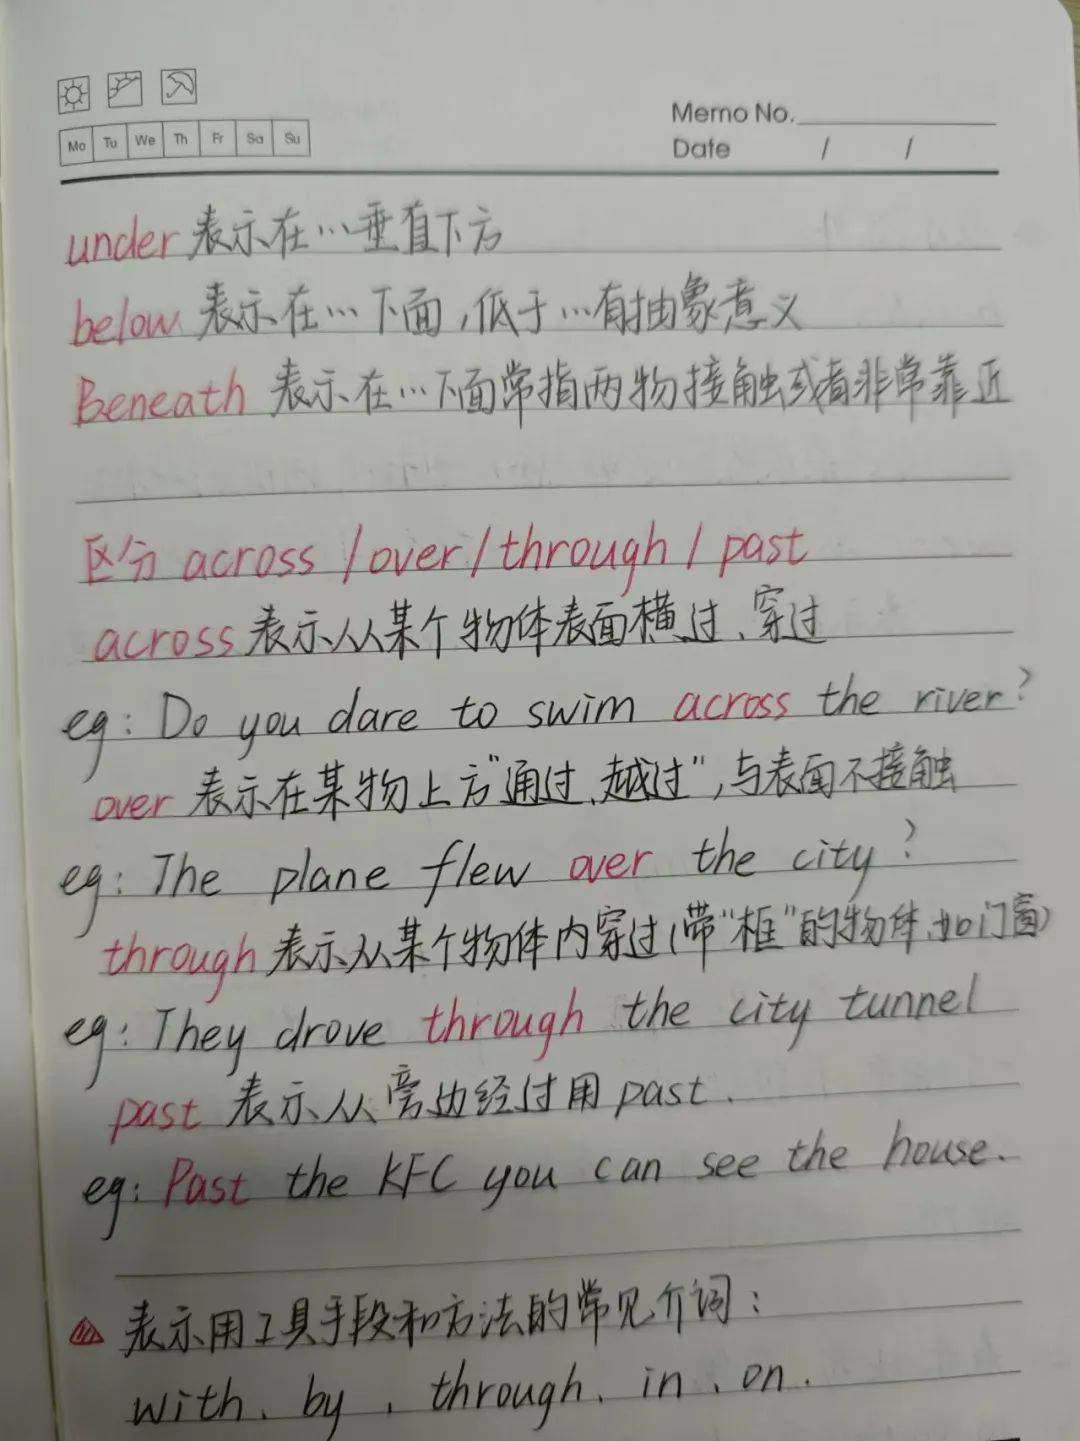 Memo No.
Mo Tu We Th Fr Sa Su
Date / /
under 表示在…垂直下方
below 表示在…下面,低于…有抽象意义
Beneath 表示在…下面常指两物接触或者非常靠近
区分 across / over / through / past
across 表示从某个物体表面横过、穿过
eg: Do you dare to swim across the river?
over 表示在某物上方"通过、越过",与表面不接触
eg: The plane flew over the city?
through 表示从某个物体内穿过(带"框"的物体,如门窗)
eg: They drove through the city tunnel
past 表示从旁边经过用 past.
eg: Past the KFC you can see the house.
表示用工具手段和方法的常见介词:
with、by、through、in、on.